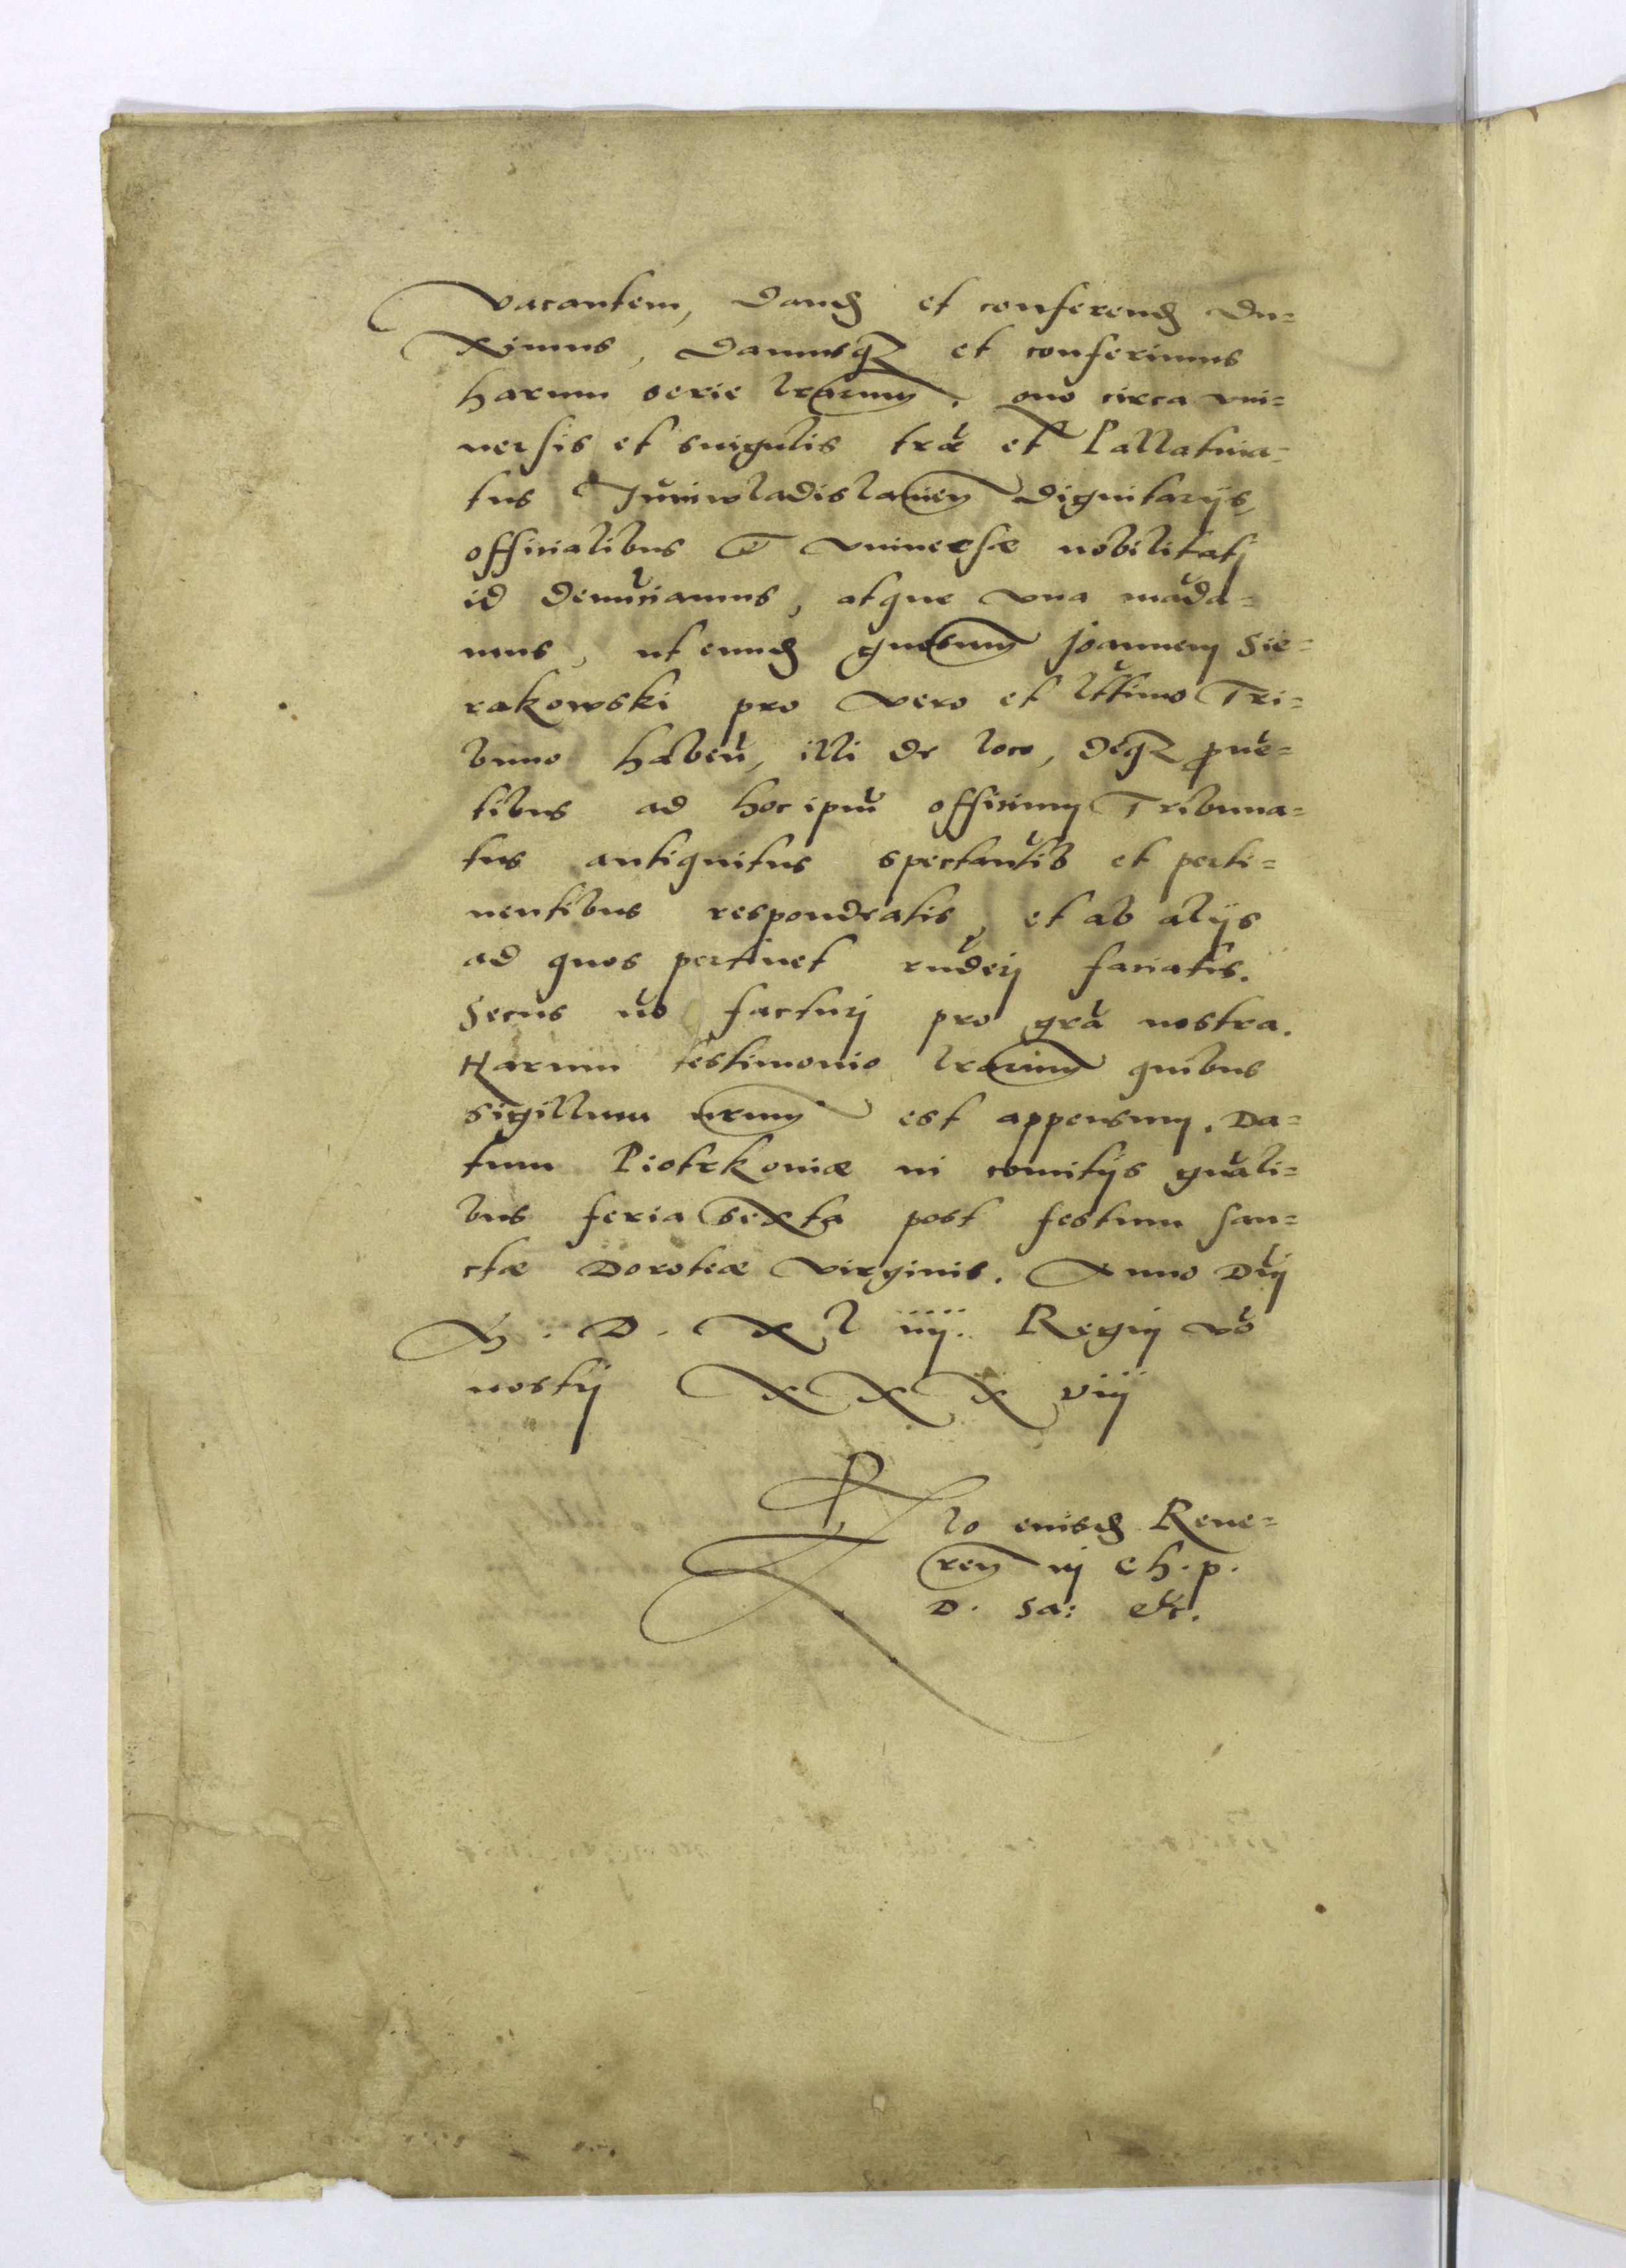 vacantem, dand et conferend du=
ximus, damusq et conferimus
harum serie lrarum. quo circa vni=
uersis et singulis trae et Pallatina=
tus Juniwladislauien dignitarijs,
officialibus et vniuersae nobilitati
id denūciamus, atque vna māda=
mus, ut eund gnosum Joannem Sie=
rakowski pro vero et lttimo Tri=
buno habeū, illi de loco, deq prouē=
tibus ad hoc ipm̄ officium Tribuna=
tus antiquitus spectantib et perti=
nentibus respondeatis, et ab alijs
ad quos pertinet rn̄deri faciatis.
Secus nō facturi pro grā nostra.
Harum testimonio lrarum quibus
sigillum nrum est appensum. Da=
tum Piotrkoniae in comitijs gnāli=
bus feria sexta post festum san=
ctae Doroteae virginis. Anno Dni
M. D. Xl iiij. Regni vō
nostri XXX viij
Rlo eiusd Reue=
ren in Ch. p.
D. Sa: etc.